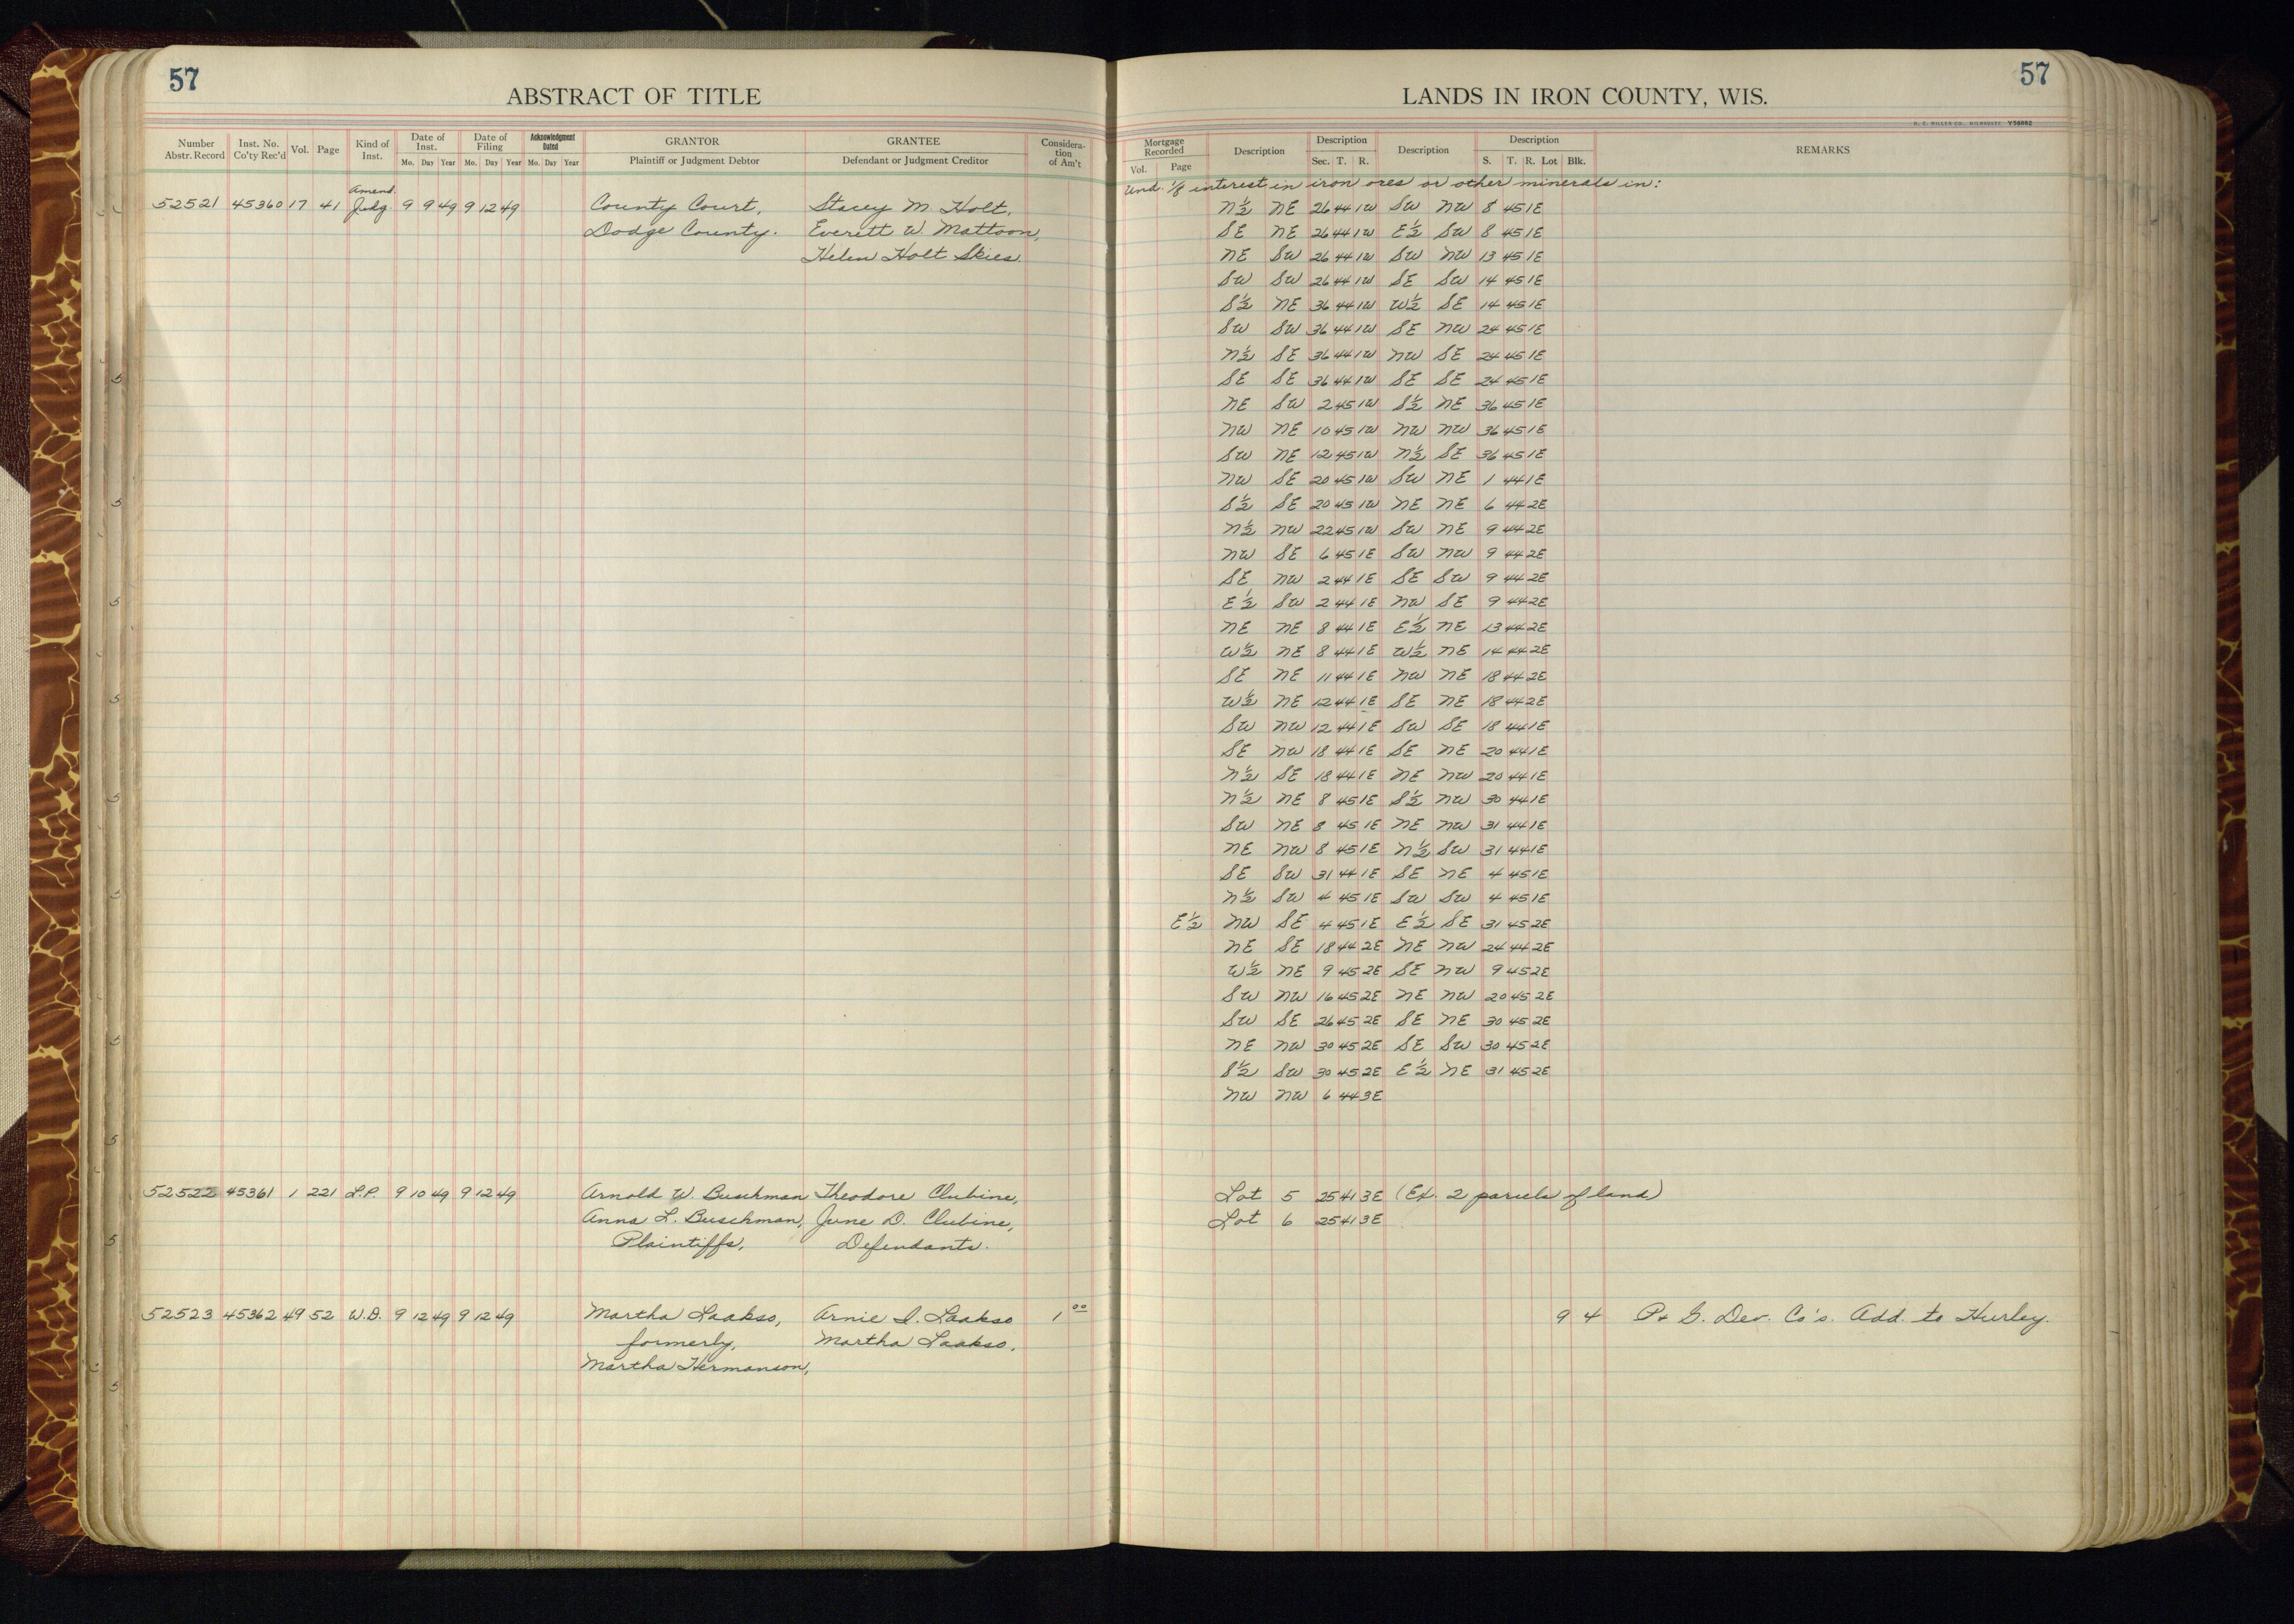 57
ABSTRACT OF TITLE
Number Abstr. Record Inst. No. Co'ty Rec'd Vol. Page Kind of Inst. Date of Inst. Mo. Day Year Date of Filing Mo. Day Year Acknowledgment Dated Mo. Day Year GRANTOR Plaintiff or Judgment Debtor GRANTEE Defendant or Judgment Creditor Consideration of Am't
Amend.
52521 45360 17 41 Judg 9 9 49 9 12 49 County Court, Stacey M. Holt,
Dodge County. Everett W. Mattoon,
Helen Holt Skies.
52522 45361 1 221 L.P. 9 10 49 9 12 49 Arnold W. Buschman Theodore Clubine,
Anna L. Buschman, June D. Clubine,
Plaintiffs, Defendants.
52523 45362 49 52 W.D. 9 12 49 9 12 49 Martha Laakso, Arnie I. Laakso 1 00
formerly, Martha Laakso,
Martha Hermanson,
57
LANDS IN IRON COUNTY, WIS.
H. C. MILLER CO., MILWAUKEE V56882
Mortgage Recorded Vol. Page Description Description Sec. T. R. Description Description S. T. R. Lot Blk. REMARKS
Und. 1/8 interest in iron ores or other minerals in:
N½ NE 26 44 1W SW NW 8 45 1E
SE NE 26 44 1W E½ SW 8 45 1E
NE SW 26 44 1W SW NW 13 45 1E
SW SW 26 44 1W SE SW 14 45 1E
S½ NE 36 44 1W W½ SE 14 45 1E
SW SW 36 44 1W SE NW 24 45 1E
N½ SE 36 44 1W NW SE 24 45 1E
SE SE 36 44 1W SE SE 24 45 1E
NE SW 2 45 1W S½ NE 36 45 1E
NW NE 10 45 1W NW NW 36 45 1E
SW NE 12 45 1W N½ SE 36 45 1E
NW SE 20 45 1W SW NE 1 44 1E
S½ SE 20 45 1W NE NE 6 44 2E
N½ NW 22 45 1W SW NE 9 44 2E
NW SE 6 45 1E SW NW 9 44 2E
SE NW 2 44 1E SE SW 9 44 2E
E½ SW 2 44 1E NW SE 9 44 2E
NE NE 8 44 1E E½ NE 13 44 2E
W½ NE 8 44 1E W½ NE 14 44 2E
SE NE 11 44 1E NW NE 18 44 2E
W½ NE 12 44 1E SE NE 18 44 2E
SW NW 12 44 1E SW SE 18 44 1E
SE NW 18 44 1E SE NE 20 44 1E
N½ SE 18 44 1E NE NW 20 44 1E
N½ NE 8 45 1E S½ NW 30 44 1E
SW NE 8 45 1E NE NW 31 44 1E
NE NW 8 45 1E N½ SW 31 44 1E
SE SW 31 44 1E SE NE 4 45 1E
N½ SW 4 45 1E SW SW 4 45 1E
E½ NW SE 4 45 1E E½ SE 31 45 2E
NE SE 18 44 2E NE NW 24 44 2E
W½ NE 9 45 2E SE NW 9 45 2E
SW NW 16 45 2E NE NW 20 45 2E
SW SE 26 45 2E SE NE 30 45 2E
NE NW 30 45 2E SE SW 30 45 2E
S½ SW 30 45 2E E½ NE 31 45 2E
NW NW 6 44 3E
Lot 5 25 41 3E (Ex. 2 parcels of land)
Lot 6 25 41 3E
9 4 P & G. Dev. Co's. Add. to Hurley.